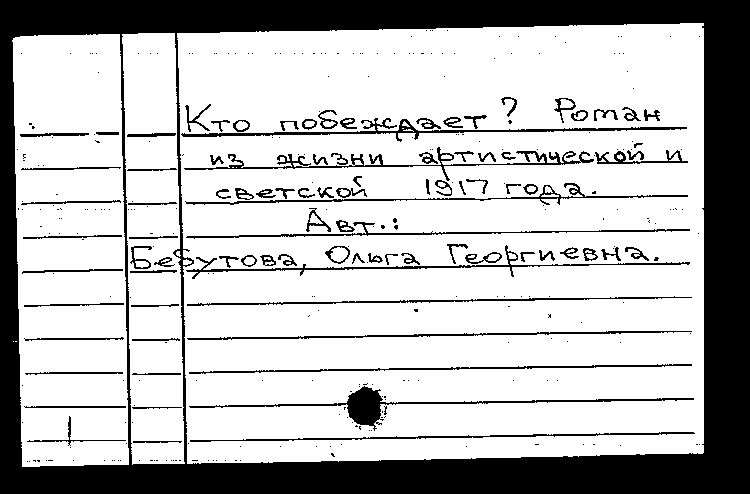 Кто побеждает? Роман
из жизни артистической и
светской 1917 года.
Авт.:
Бебутова, Ольга Георгиевна.